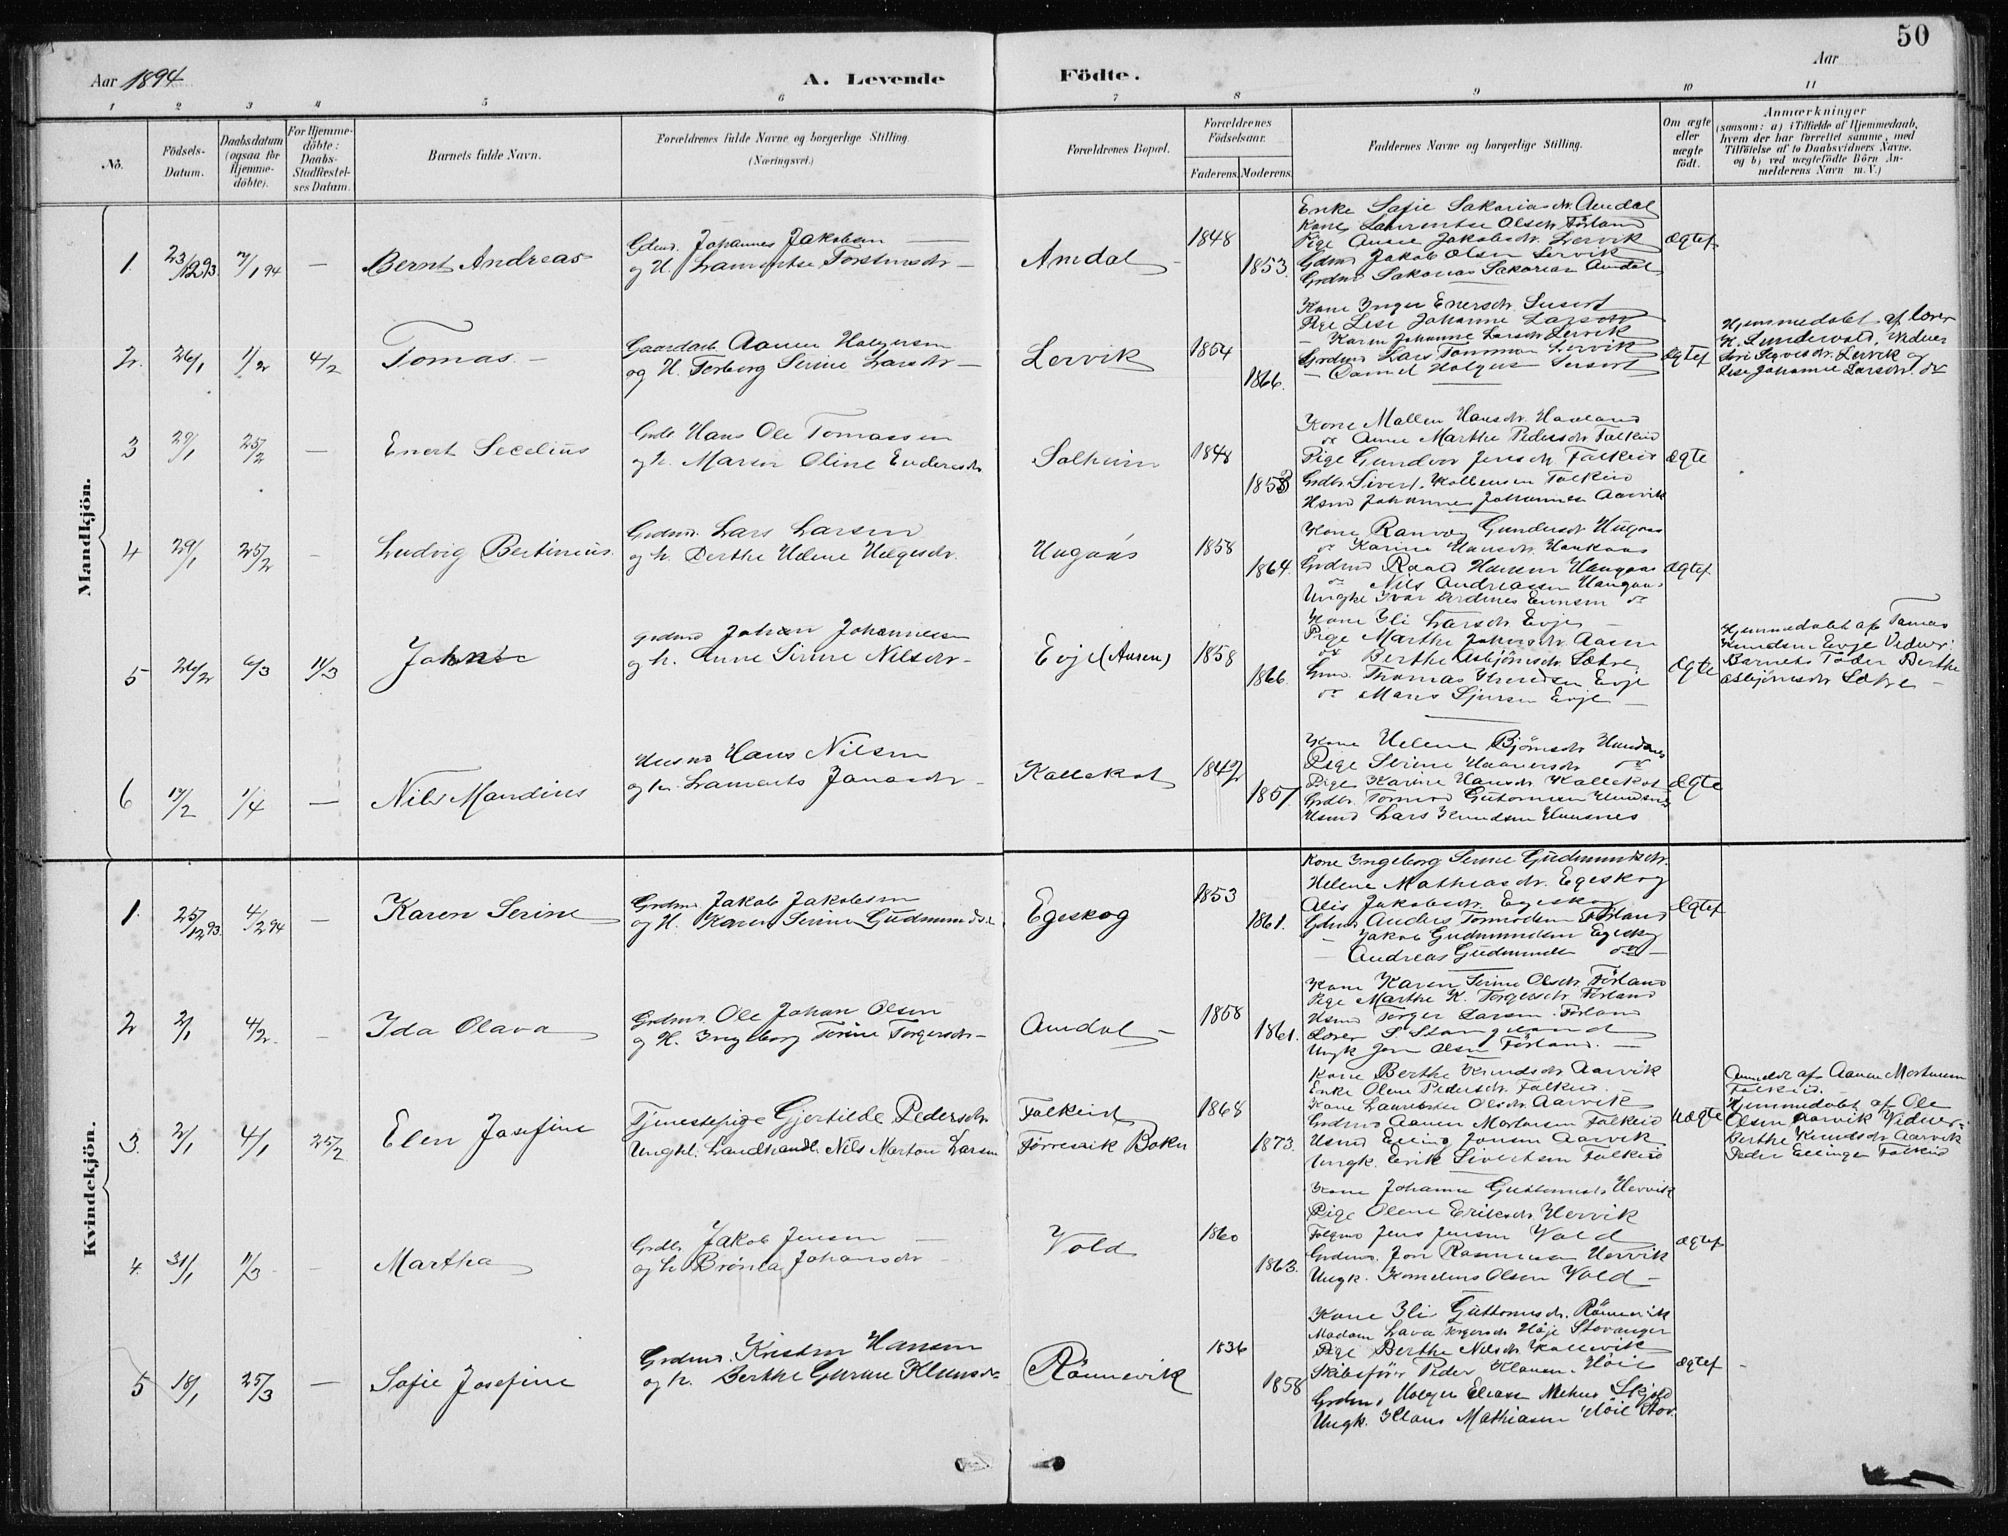 50
Aar 1894 A. Levende Födte. Aar
1 2 3 4 5 6 7 8 9 10 11
No. Födsels-Datum. Daabsdatum (ogsaa for Hjemmedöbte). For Hjemmedöbte: Daabs-Stadfæstelses Datum. Barnets fulde Navn. Forældrenes fulde Navne og borgerlige Stilling. (Næringsvei.) Forældrenes Bopæl. Forældrenes Födselsaar. Faderens. Moderens. Faddernes Navne og borgerlige Stilling. Om ægte eller uægte födt. Anmærkninger (saasom: a) i Tilfælde af Hjemmedaab, hvem der har forrettet samme, med Tilföielse af to Daabsvidners Navne, og b) ved uægtefödte Börn Anmelderens Navn m. V.)
Mandkjön.
1. 23/12 93 7/1 94 — Bernt Andreas
Johannes Jakobsen
og H. Laurentse Torstensdr —
Amdal - 1848 1853.
Enke Sofie Sakariasdr. Amdal
Kone Laurentse Olsdr. Förland
Pige Anne Jakobsdr. Lervik
Jakob Olsen Lervik
Sakarias Sakariasen Amdal
Ægtef
2. 26/1 1/2 4/2 Tomas —
Gaardarb. Aanen Holgersen
og H. Torborg Serine Larsdr —
Lervik 1854 1866.
Kone Inger Enersdr. Susort
Pige Lise Johanne Larsdr
— Karen Johanne Larsdr. Lervik
Grdmd Lars Tommasen Lervik
— Daniel Holgers Susort
Ægtef
Hjemmedøbt af lærer
H. Lundevold, Vidner
Lervik og
Lise Johanne Larsdr. do
3 29/1 25/2 — Enert Secelius
Hans Ole Tomassen
og h. Maren Oline Endresdr
Solheim 1848 1853
Kone Mallen Hansdr. Haaland
do Anne Marthe Pedersdr Falkeid
Pige Gundvor Jensdr. Falkeid
Grdbr Sivert Kollensen Falkeid
Husmd Johannes Johannesen Aarvik
ægte
4 29/1 25/2 - Ludvig Bertinius.
Grdmd. Lars Larsen
og h. Berthe Helene Helgesdr.
Haugaas 1858 1864.
Kone Ranveg Gundersdr Haugaas
do Karine Hansdr. Haukaas
Grdmd Roald Hansen Haugaas
do Nils Andreassen Haugaas
Ungke Ivar do
Ægtef
5 26/2 6/3 11/3 Johan
Grdmd Johan Johannessen
og h. Anne Serine Nilsdr -
Evje (Aasen) 1858 1866.
Kone Ili Larsdr Evje —
Pige Marthe Aasen
do Berthe Asbjörnsdr. Sætre
Thomas Knudsen Evje
do Mons Sjursen Evje —
Ægte
Hjemmedøbt af Tomas
Knudsen Evje Vidner:
Barnets Fader Berthe
Asbjörnsdr Sætre —
6 17/2 1/4 — Nils Mandius
Husmd Hans Nilsen
og h. Jonasdr —
Kallekot 1842 1851.
Kone Helene Björnsdr Hundsnes
Pige Serine do
Pige Karine Hansdr. Kallekot
Grdbr. Guttormsen Hundsnes
Husmd Lars Knudsen Hundsnes
Ægte
Kvindekjön.
1. 25/12 93. 4/2 94 — Karen Serine
Grdmd. Jakob Jakobsen
og H. Karen Serine Gudmundsdr.
Egeskog 1853 1861.
Kone Ingeborg Serine Gudmundsdr.
Helene Mathiasdr. Egeskog
Alis Jakobsdr. Egeskog
Anders Tormodsen Förland
— Jakob Gudmundsen Egeskog
— Andreas Gudmundsen do —
Ægtef
2 2/1 4/2 - Ida Olava
Grdmd. Ole Johan Olsen
og H. Ingeborg Torine Torgersdr —
Amdal - 1858 1861.
Kone Karen Serine Olsdr Förland
Pige Marthe K. Torgersdr. Förland
Husmd Torger Larsen Förland
Lærer S. Stangeland
Ungk Jon Olsen Förland. —
3. 2/1 4/1 25/2 Elen Josefine
Tjenestepige Gjertilde Pedersdr.
Ungkl. Landhandl. Nils Morton Larsen
Falkeid
Førresvik Bokn 1868 1873.
Kone Berthe Knudsdr Aarvik
Enke Olene Pedersdr. Falkeid —
Kone Laurentse Olsdr. Aarvik
Grdmd Aanen Mortensen Falkeid
Husmd Elling Jonsen Aarvik
Ungk. Erik Sivertsen Falkeid
Uægte
Anmeldt af Aanen Mortensen
Falkeid.
Hjemmedøbt af Ole
Olsen Aarvik Vidner:
Berthe Knudsdr Aarvik
Peder Ellingsen Falkeid
4. 31/1 11/3 - Martha
Grdbr. Jakob Jensen —
og h. Brönla Johansdr —
Vold 1860 1863.
Kone Johanne Guttormsdr Hervik
Pige Olene Eriksdr. Hervik
Jens Jensen Vold
Grdmd. Jon Rasmussen Hervik
Ungk. Kornelius Olsen Vold —
ægtef
5 18/1 25/3 — Sofie Josefine
Grdmd. Kristen Hansen
og h. Berthe Gurine Klausdr
Rönnevik 1836 1858
Kone Ili Guttormsdr. Rönnevik
Madam Lava Torgersdr Höje Stavanger
Pige Berthe Nilsdr Kallevik
Skibsförer Peder Klausen Höie
Grdmd Holger Eliasen Mehus Skjold
Ungk. Klaus Mathiasen Höie Stav.
ægtef —